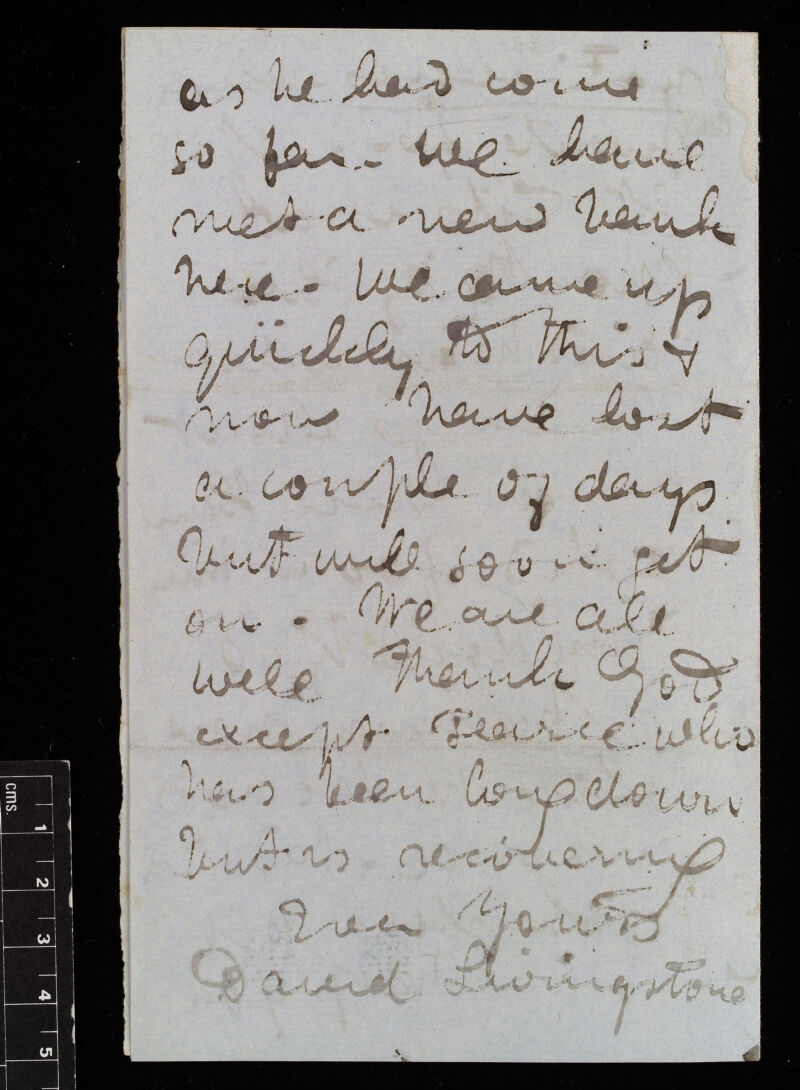 as he had come
so far - We have
met a new bank
here - We came up
quickly to this &
now have lost
a couple of days
but will soon get
on - We are all
well Thank God
except Pearce who
has been long down
but is recovering
Ever Yours
David Livingstone
cms.
1
2
3
4
5